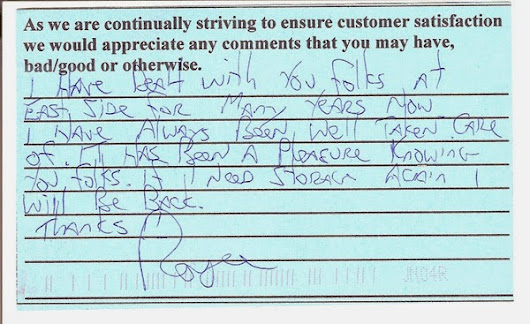 As we are continually striving to ensure customer satisfaction
we would appreciate any comments that you may have,
bad/good or otherwise.
I HAVE DEALT WITH YOU FOLKS AT
EAST SIDE FOR MANY YEARS NOW
I HAVE ALWAYS BEEN WELL TAKEN CARE
OF. IT HAS BEEN A PLEASURE KNOWING
YOU FOLKS. IF I NEED STORAGE AGAIN I
WILL BE BACK.
THANKS